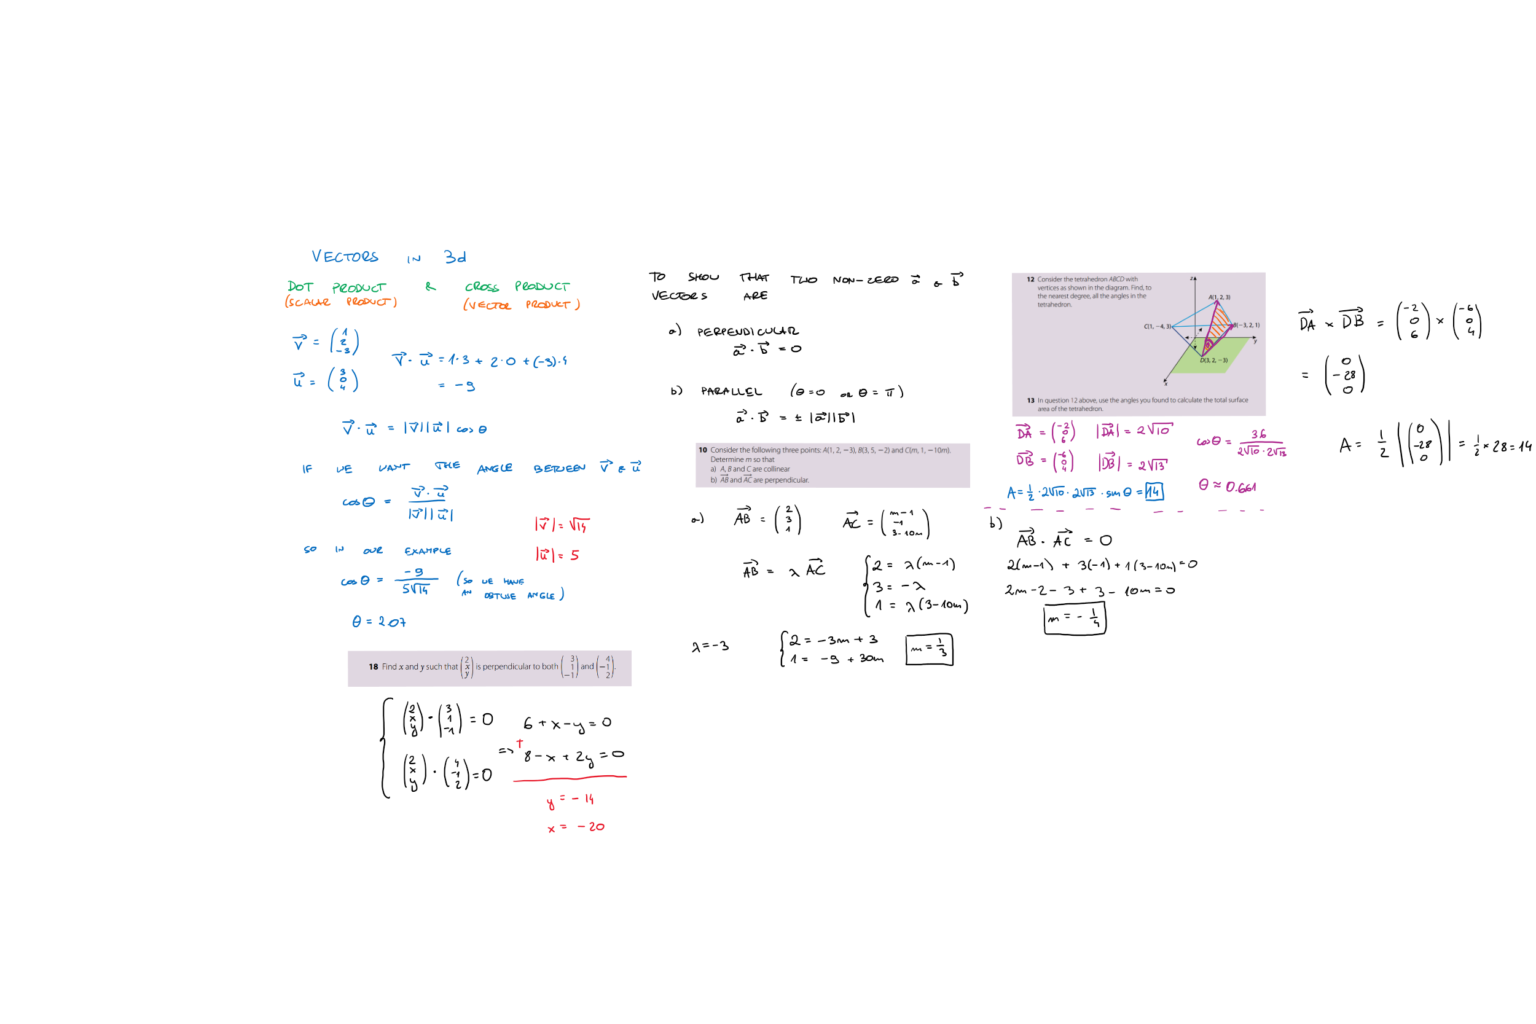 VECTORS IN 3d
DOT PRODUCT & CROSS PRODUCT
(SCALAR PRODUCT) (VECTOR PRODUCT)
v⃗ = (1 2 -3)
u⃗ = (3 0 4)
v⃗ · u⃗ = 1·3 + 2·0 + (-3)·4
= -9
v⃗ · u⃗ = |v⃗||u⃗| cos θ
IF WE WANT THE ANGLE BETWEEN v⃗ & u⃗
cos θ = v⃗ · u⃗ / |v⃗||u⃗|
|v⃗| = √14
|u⃗| = 5
SO IN OUR EXAMPLE
cos θ = -9 / 5√14 (SO WE HAVE AN OBTUSE ANGLE)
θ = 2.07
18 Find x and y such that (2 x y) is perpendicular to both (3 1 −1) and (4 −1 2).
(2 x y) · (3 1 -1) = 0
(2 x y) · (4 -1 2) = 0
=>
6 + x - y = 0
+
8 - x + 2y = 0
y = -14
x = -20
TO SHOW THAT TWO NON-ZERO a⃗ & b⃗
VECTORS ARE
a) PERPENDICULAR
a⃗ · b⃗ = 0
b) PARALLEL (θ = 0 or θ = π)
a⃗ · b⃗ = ± |a⃗||b⃗|
10 Consider the following three points: A(1, 2, −3), B(3, 5, −2) and C(m, 1, −10m).
Determine m so that
a) A, B and C are collinear
b) AB⃗ and AC⃗ are perpendicular.
a) AB⃗ = (2 3 1) AC⃗ = (m-1 -1 3-10m)
AB⃗ = λ AC⃗
2 = λ(m-1)
3 = -λ
1 = λ(3-10m)
λ = -3
2 = -3m + 3
1 = -9 + 30m
m = 1/3
12 Consider the tetrahedron ABCD with
vertices as shown in the diagram. Find, to
the nearest degree, all the angles in the
tetrahedron.
z
A(1, 2, 3)
C(1, −4, 3)
B(−3, 2, 1)
y
D(3, 2, −3)
x
13 In question 12 above, use the angles you found to calculate the total surface
area of the tetrahedron.
DA⃗ = (-2 0 6) |DA⃗| = 2√10
DB⃗ = (-6 0 4) |DB⃗| = 2√13
cos θ = 36 / 2√10 · 2√13
θ ≈ 0.661
A = 1/2 · 2√10 · 2√13 · sin θ = 14
b)
AB⃗ · AC⃗ = 0
2(m-1) + 3(-1) + 1(3-10m) = 0
2m - 2 - 3 + 3 - 10m = 0
m = - 1/4
DA⃗ × DB⃗ = (-2 0 6) × (-6 0 4)
= (0 -28 0)
A = 1/2 |(0 -28 0)| = 1/2 × 28 = 14